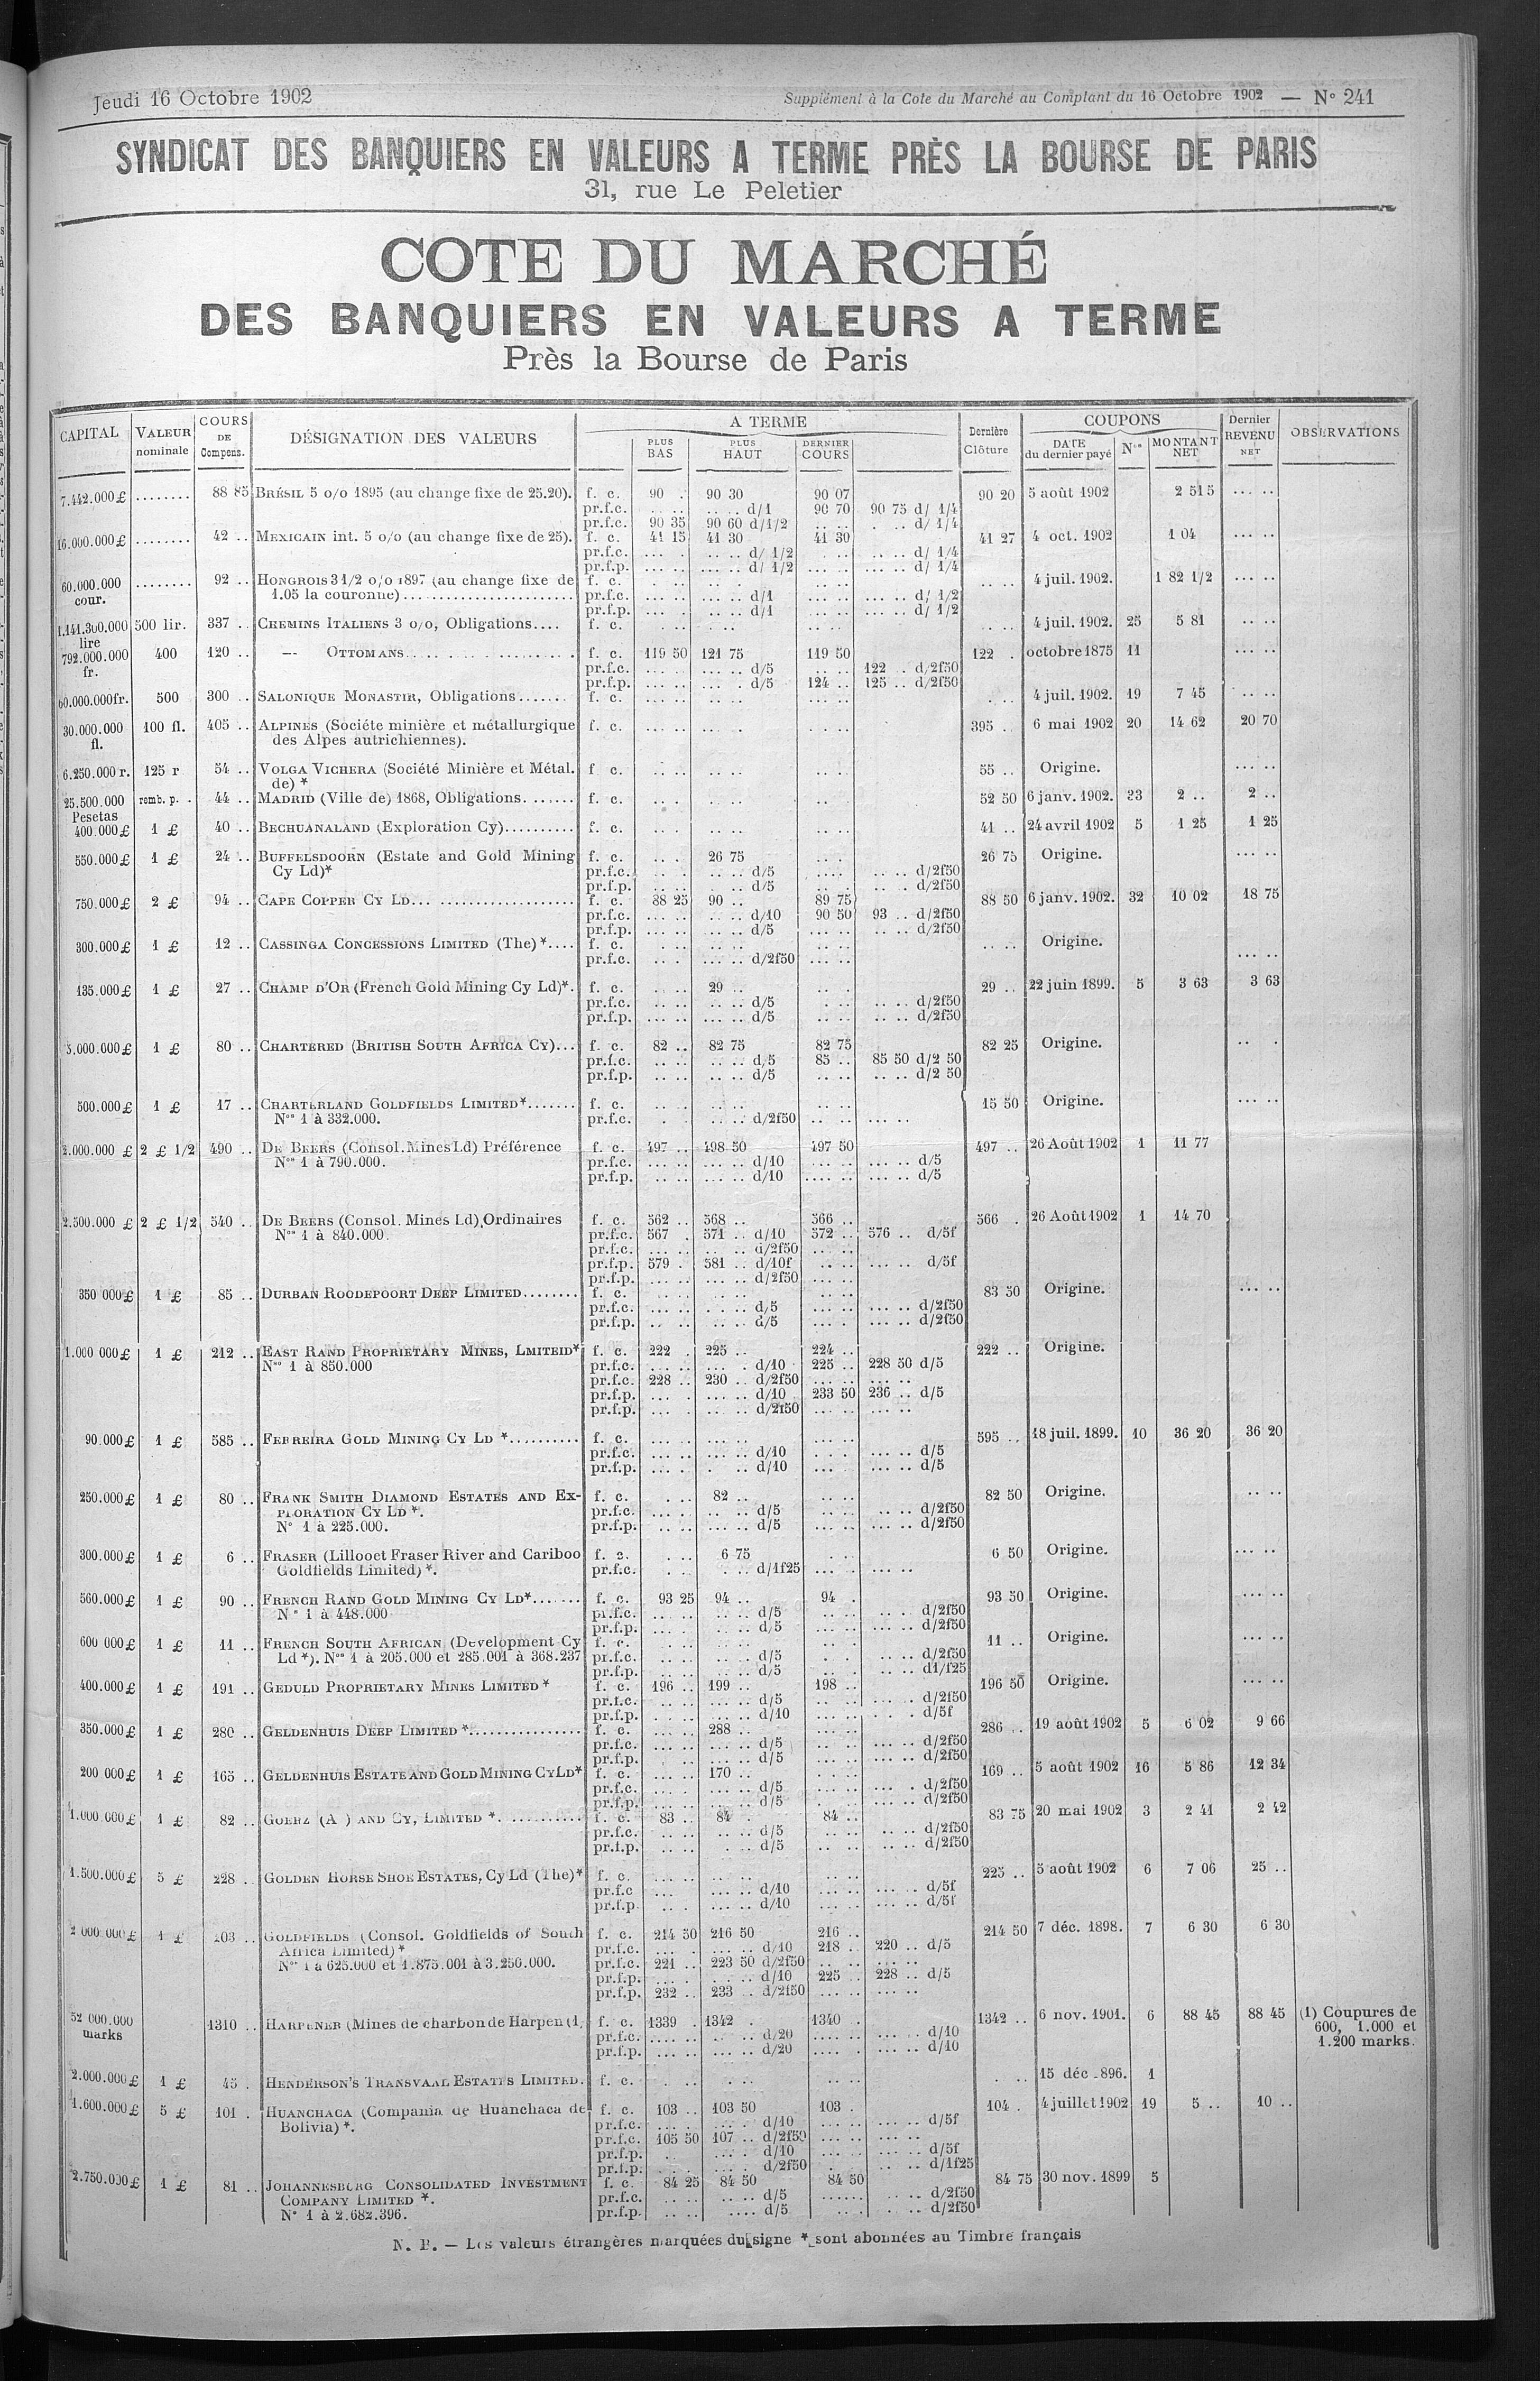 Jeudi 16 Octobre 1902
Supplément à la Cote du Marché au Comptant du 16 Octobre 1902 — N° 241
SYNDICAT DES BANQUIERS EN VALEURS A TERME PRÈS LA BOURSE DE PARIS
31, rue Le Peletier
COTE DU MARCHÉ
DES BANQUIERS EN VALEURS A TERME
Près la Bourse de Paris
CAPITAL VALEUR nominale COURS DE Compens. DÉSIGNATION DES VALEURS A TERME PLUS BAS PLUS HAUT DERNIER COURS Dernière Clôture COUPONS DATE du dernier payé Nos MONTANT NET Dernier REVENU NET OBSERVATIONS
7.442.000£ ........ 88 85 BRÉSIL 5 o/o 1895 (au change fixe de 25.20). f. c. 90 . 90 30 90 07 90 20 5 août 1902 2 515 ... ..
pr.f.c. .. .. .. .. d/1 90 70 90 75 d/ 1/4
pr.f.c. 90 35 90 60 d/1/2 .. .. . .. d/ 1/4
16.000.000£ ........ 42 .. MEXICAIN int. 5 o/o (au change fixe de 25). f. c. 41 15 41 30 41 30 41 27 4 oct. 1902 1 04 ... ..
pr.f.c. ... . .. .. d/ 1/2 . .. .. .. d/ 1/4
pr.f.p. ... .. ... .. d/ 1/2 ... .. ... .. d/ 1/4
60.000.000 cour. ........ 92 .. HONGROIS 3 1/2 o/o 1897 (au change fixe de f. c. .. .. 4 juil. 1902. 1 82 1/2 ... ..
1.05 la couronne)........................ pr.f.c. ... . .. .. d/1 ... .. ... .. d/ 1/2
pr.f.p. ... . .. .. d/1 ... .. ... .. d/ 1/2
1.141.300.000 lire 500 lir. 337 .. CREMINS ITALIENS 3 o/o, Obligations.... f. c. 4 juil. 1902. 25 5 81 .. ..
792.000.000 fr. 400 120 .. — OTTOMANS.................... f. c. 119 50 121 75 119 50 122 . octobre 1875 11 ... ..
pr.f.c. ... .. ... .. d/5 ... .. 122 .. d/2f50
pr.f.p. ... .. ... . d/5 124 .. 125 .. d/2f50
60.000.000fr. 500 300 .. SALONIQUE MONASTIR, Obligations....... f. c. 4 juil. 1902. 19 7 45 .. ..
30.000.000 fl. 100 fl. 405 .. ALPINES (Sociéte minière et métallurgique f. c. 395 .. 6 mai 1902 20 14 62 20 70
des Alpes autrichiennes).
6.250.000 r. 125 r 54 .. VOLGA VICHERA (Société Minière et Métal. f c. 55 .. Origine. ... ..
de) *
25.500.000 Pesetas remb. p. . 44 .. MADRID (Ville de) 1868, Obligations....... f. c. 52 50 6 janv. 1902. 33 2 .. 2 ..
400.000£ 1 £ 40 .. BECHUANALAND (Exploration Cy).......... f. c. 41 .. 24 avril 1902 5 1 25 1 25
550.000£ 1 £ 24 .. BUFFELSDOORN (Estate and Gold Mining f. c. 26 75 26 75 Origine. ... ..
Cy Ld)* pr.f.c. .. .. d/5 .. .. d/2f50
pr.f.p. .. .. d/5 .. .. d/2f50
750.000£ 2 £ 94 .. CAPE COPPER CY LD...................... f. c. 88 25 90 .. 89 75 88 50 6 janv. 1902. 32 10 02 18 75
pr.f.c. ... .. ... .. d/10 90 50 93 .. d/2f50
pr.f.p. ... .. .. .. d/5 ... .. .. .. d/2f50
300.000£ 1 £ 12 .. CASSINGA CONCESSIONS LIMITED (The) *.... f. c. .. .. Origine. ... ..
pr.f.c. ... .. d/2f50
135.000£ 1 £ 27 .. CHAMP D'OR (French Gold Mining Cy Ld)*. f. c. 29 .. 29 .. 22 juin 1899. 5 3 63 3 63
pr.f.c. .. .. d/5 .. .. d/2f50
pr.f.p. ... .. d/5 .. .. d/2f50
5.000.000£ 1 £ 80 .. CHARTERED (BRITISH SOUTH AFRICA CY)... f. c. 82 .. 82 75 82 75 82 25 Origine. .. .
pr.f.c. .. .. .. .. d/5 85 .. 85 50 d/2 50
pr.f.p. .. .. .. .. d/5 .. .. .. .. d/2 50
500.000£ 1 £ 17 .. CHARTERLAND GOLDFIELDS LIMITED*....... f. c. 15 50 Origine. ... ..
Nos 1 à 332.000. pr.f.c. .. .. d/2f50
2.000.000 £ 2 £ 1/2 490 .. DE BEERS (Consol. Mines Ld) Préférence f. c. 497 .. 498 50 497 50 497 .. 26 Août 1902 1 11 77
Nos 1 à 790.000. pr.f.c. ... .. ... .. d/10 ... .. ... .. d/5
pr.f.p. .. .. ... .. d/10 .... .. ... .. d/5
2.500.000 £ 2 £ 1/2 540 .. DE BEERS (Consol. Mines Ld), Ordinaires f. c. 562 .. 568 .. 566 .. 566 . 26 Août 1902 1 14 70
Nos 1 à 840.000. pr.f.c. 567 . 571 .. d/10 572 .. 576 .. d/5f
pr.f.c. ... .. .. .. d/2f50
pr.f.p. 579 . 581 .. d/10f ... .. d/5f
pr.f.p. ... .. ... .. d/2f50 ... ..
350 000£ 1 £ 85 .. DURBAN ROODEPOORT DEEP LIMITED........ f. c. 83 50 Origine. ... ..
pr.f.c. .. .. d/5 ... .. d/2f50
pr.f.p. .. .. d/5 ... .. d/2f50
1.000 000£ 1 £ 212 .. EAST RAND PROPRIETARY MINES, LMITEID* f. c. 222 . 225 .. 224 .. 222 .. Origine.
Nos 1 à 850.000 pr.f.c. ... .. ... . d/10 225 .. 228 50 d/5
pr.f.c. 228 .. 230 .. d/2f50 ... ..
pr.f.p. ... . ... .. d/10 233 50 236 .. d/5
pr.f.p. ... . .. .. d/2f50 ... ..
90.000£ 1 £ 585 .. FERREIRA GOLD MINING CY LD *.......... f. c. 595 .. 18 juil. 1899. 10 36 20 36 20
pr.f.c. ... .. ... .. d/10 ... .. d/5
pr.f.p. ... .. .. d/10 ... .. d/5
250.000£ 1 £ 80 .. FRANK SMITH DIAMOND ESTATES AND EX- f. c. 82 .. 82 50 Origine. .. ..
PLORATION CY LD *. pr.f.c. .. .. d/5 .. .. d/2f50
N° 1 à 225.000. pr.f.p. ... .. d/5 ... .. d/2f50
300.000£ 1 £ 6 .. FRASER (Lillooet Fraser River and Cariboo f. c. 6 75 6 50 Origine. ... ..
Goldfields Limited) *. pr.f.c. . .. d/1f25
560.000£ 1 £ 90 .. FRENCH RAND GOLD MINING CY LD*....... f. c. 93 25 94 .. 94 . 93 50 Origine. ... ..
N° 1 à 448.000 pr.f.c. .. .. d/5 .. .. d/2f50
pr.f.p. .. .. d/5 .. .. d/2f50
600 000£ 1 £ 11 .. FRENCH SOUTH AFRICAN (Development Cy f. c. 11 .. Origine. ... ..
Ld *). Nos 1 à 205.000 et 285.001 à 368.237 pr.f.c. .. .. d/5 .. .. d/2f50
pr.f.p. .. .. d/5 .. .. d1/f25
400.000£ 1 £ 191 .. GEDULD PROPRIETARY MINES LIMITED * f. c. 196 .. 199 .. 198 .. 196 50 Origine. ... ..
pr.f.c. .. .. d/5 ... .. d/2f50
pr.f.p. .. .. d/10 ... . d/5f
350.000£ 1 £ 280 .. GELDENHUIS DEEP LIMITED *................ f. c. 288 .. 286 .. 19 août 1902 5 6 02 9 66
pr.f.c. ... .. d/5 ... .. d/2f50
pr.f.p. ... .. d/5 ... .. d/2f50
200 000£ 1 £ 165 .. GELDENHUIS ESTATE AND GOLD MINING CY LD* f. c. 170 .. 169 .. 5 août 1902 16 5 86 12 34
pr.f.c. ... .. d/5 ... . d/2f50
pr.f.p. ... .. d/5 ... .. d/2f50
1.000.000£ 1 £ 82 .. GOERZ (A ) AND CY, LIMITED *........... f. c. 83 .. 84 . 84 .. 83 75 20 mai 1902 3 2 41 2 42
pr.f.c. .. .. d/5 .. .. d/2f50
pr.f.p. . .. d/5 .. .. d/2f50
1.500.000£ 5 £ 228 .. GOLDEN HORSE SHOE ESTATES, Cy Ld (The)* f. c. 225 .. 5 août 1902 6 7 06 25 ..
pr.f.c ... .. d/10 ... .. d/5f
pr.f.p. ... .. d/10 ... .. d/5f
2 000 000£ 1 £ 203 .. GOLDFIELDS (Consol. Goldfields of South f. c. 214 50 216 50 216 .. 214 50 7 déc. 1898. 7 6 30 6 30
Africa Limited) * pr.f.c. ... . ... .. d/10 218 .. 220 .. d/5
Nos 1 à 625.000 et 1.875.001 à 3.250.000. pr.f.c. 221 .. 223 50 d/2f50
pr.f.p. ... . . .. d/10 225 .. 228 .. d/5
pr.f.p. 232 .. 233 .. d/2f50 ... ..
52 000.000 marks 1310 .. HARPENER (Mines de charbon de Harpen (1, f. c. 1339 . 1342 . 1340 . 1342 .. 6 nov. 1901. 6 88 45 88 45 (1) Coupures de
pr.f.c. .... .. .. d/20 .... .. d/10 600, 1.000 et
pr.f.p. ... .. ... .. d/20 .... . d/10 1.200 marks.
2.000.000£ 1 £ 45 . HENDERSON'S TRANSVAAL ESTATES LIMITED. f. c. . .. 15 déc 896. 1
1.600.000£ 5 £ 101 . HUANCHACA (Compania de Huanchaca de f. c. 103 .. 103 50 103 . 104 . 4 juillet 1902 19 5 .. 10 ..
Bolivia) *. pr.f.c. ... . d/10 ... .. d/5f
pr.f.c. 105 50 107 .. d/2f50 ... ..
pr.f.p. ... . d/10 ... .. d/5f
pr.f.p. ... . d/2f50 .. .. d/1f25
2.750.000£ 1 £ 81 .. JOHANNESBURG CONSOLIDATED INVESTMENT f. c. 84 25 84 50 84 50 84 75 30 nov. 1899 5
COMPANY LIMITED *. pr.f.c. .. .. .. .. d/5 ...... .. .. d/2f50
N° 1 à 2.682.396. pr.f.p. .. .. .... d/5 .. .. d/2f50
N. B. — Les valeurs étrangères marquées du signe * sont abonnées au Timbre français